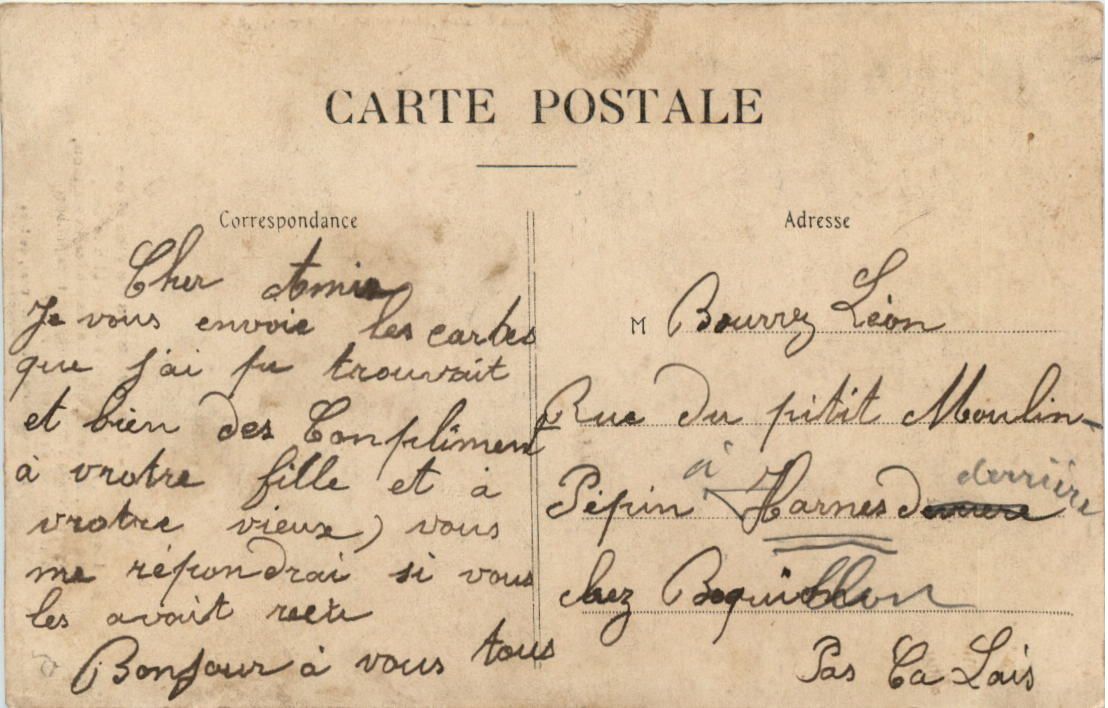 CARTE POSTALE
Correspondance
Cher Amis
Je vous envoie les cartes
que j'ai pu trouvait
et bien des Conpliment
à vrotre fille et à
vrotre vieux) vous
me répondrai si vous
les avait reçu
Bonjour à vous tous
Adresse
M Bourrez Léon
Rue du pitit Moulin-
Pépin à Harnes derrière
chez
Pas Ca Lais